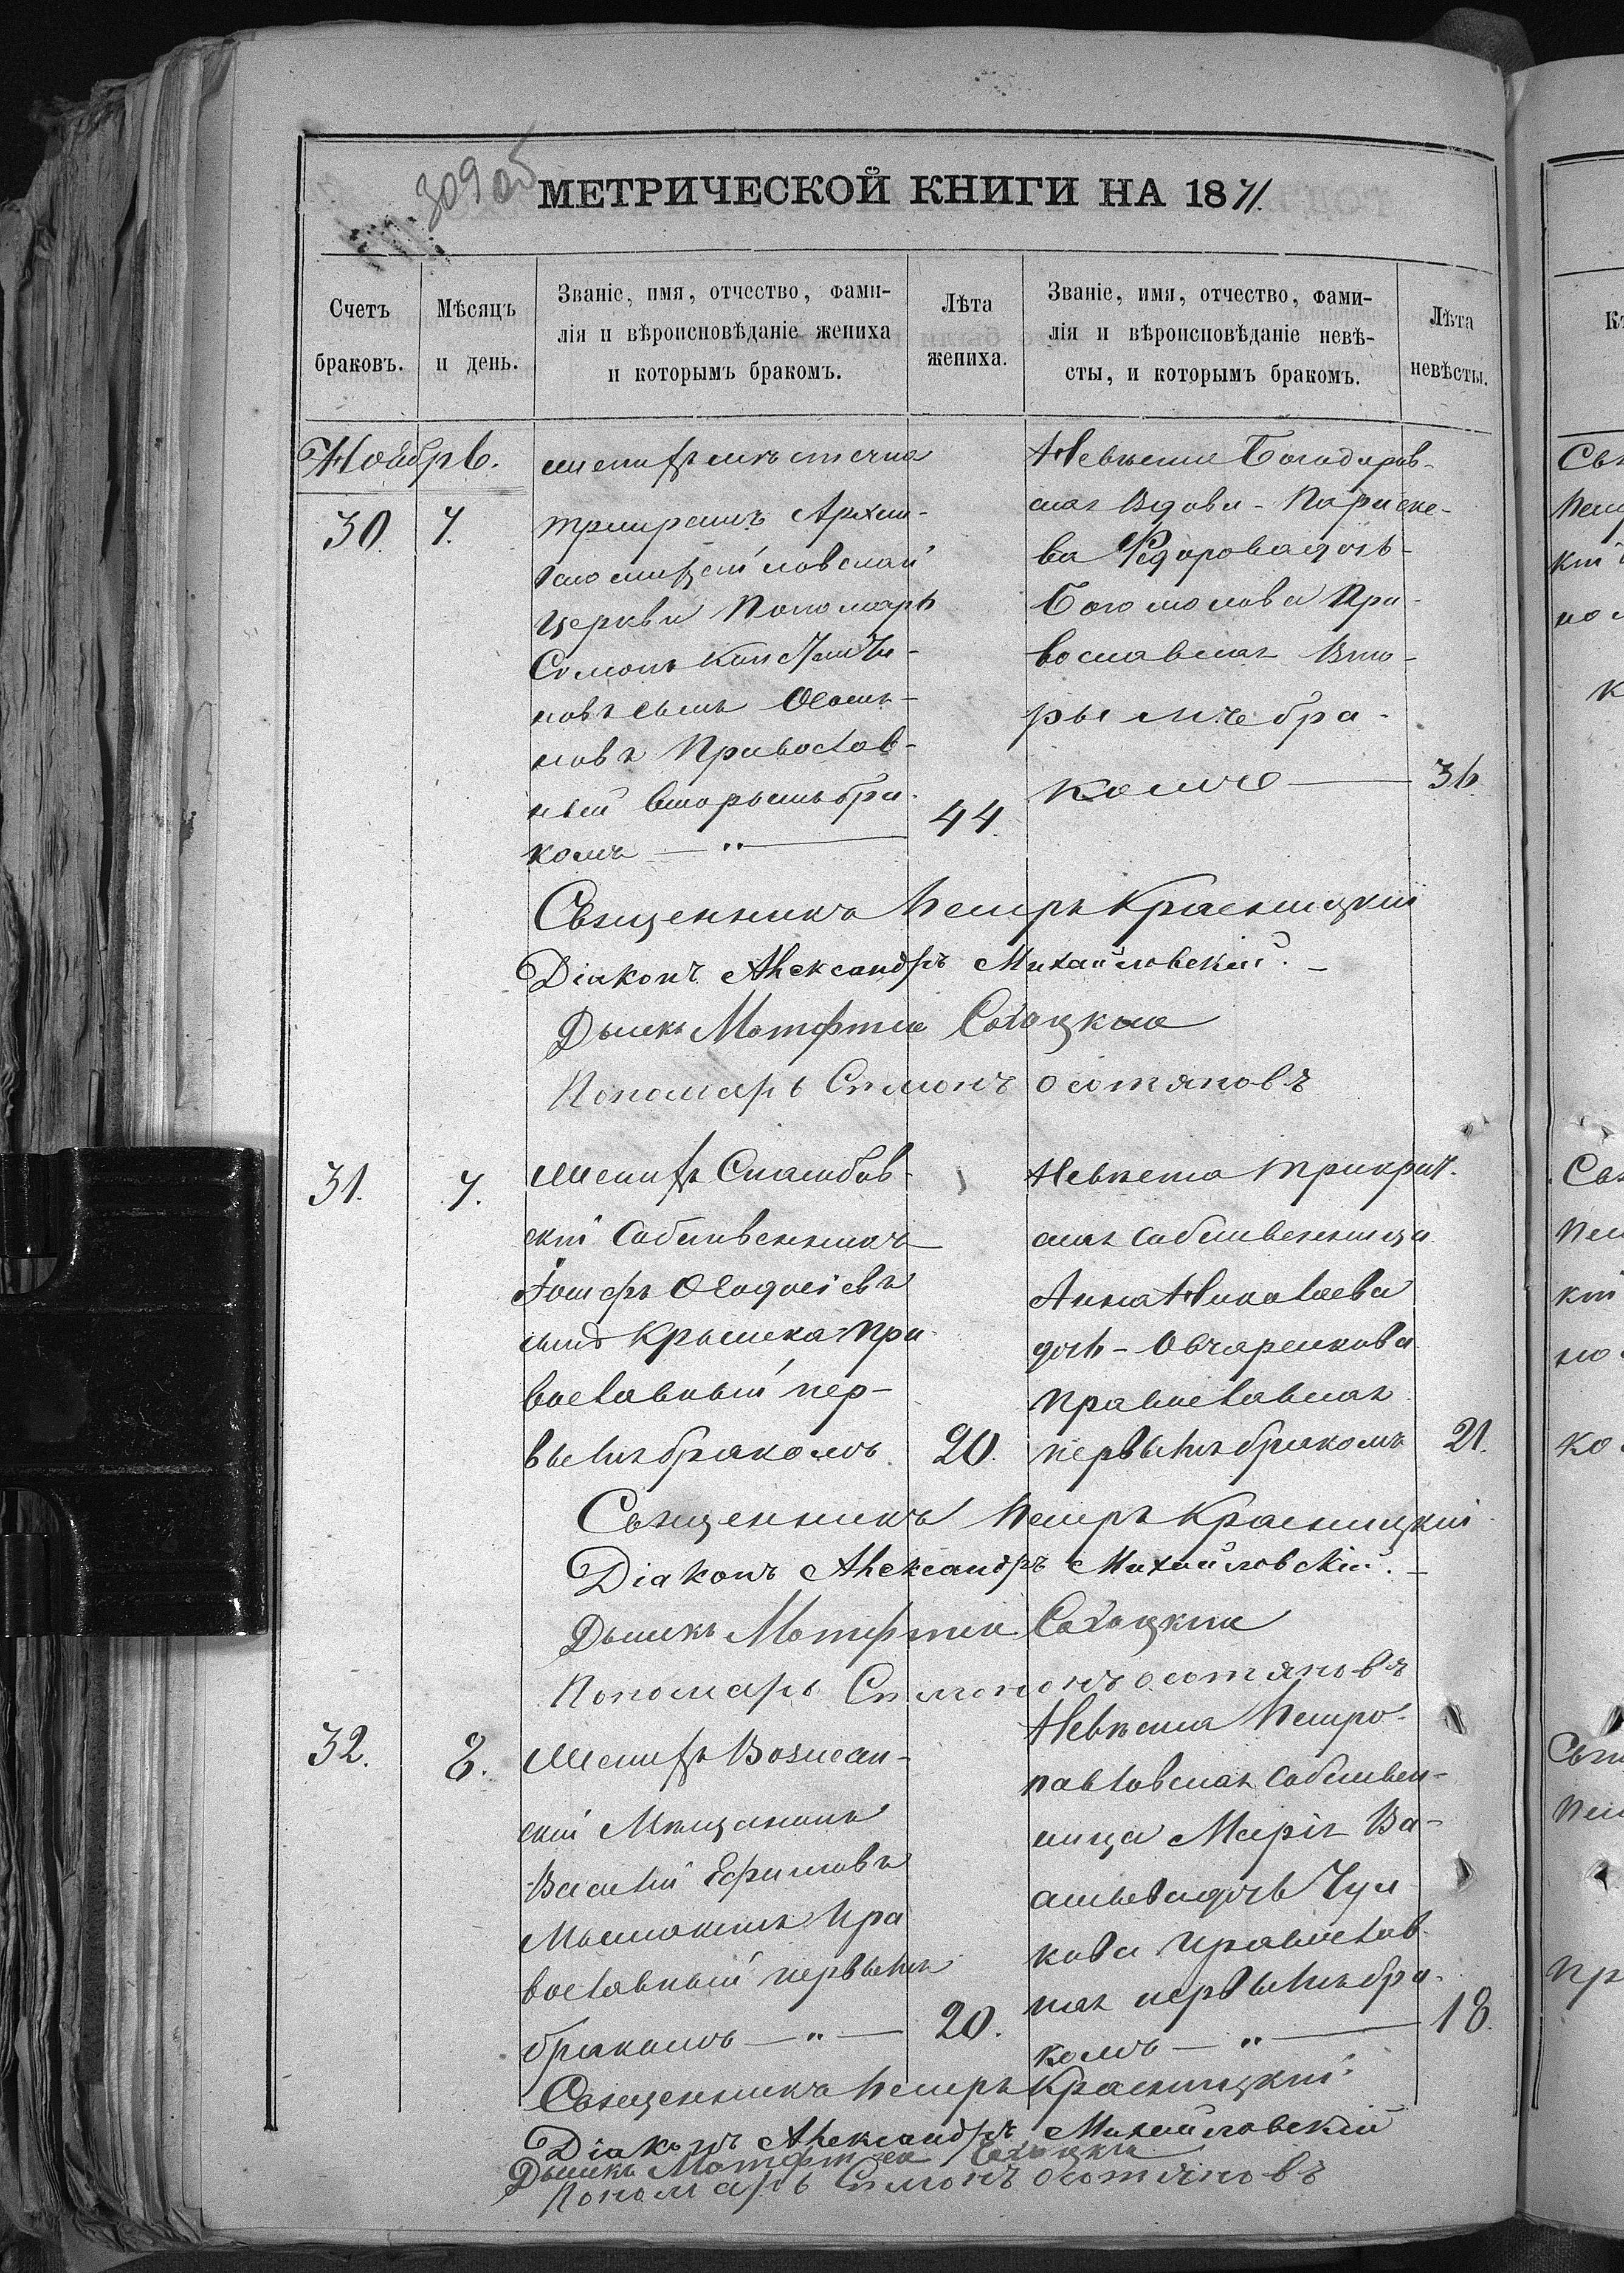 309 об
МЕТРИЧЕСКОЙ КНИГИ НА 1871.
Счетъ браковъ.
Мѣсяцъ и день.
Званіе, имя, отчество, фами-
лія и вѣроисповѣданіе жениха
и которымъ бракомъ.
Лѣта жениха.
Званіе, имя, отчество, фами-
лія и вѣроисповѣданіе невѣ-
сты, и которымъ бракомъ.
Лѣта невѣсты.
Ноябрь.
30. 7.
церкви Пономарь
Симонъ
новъ сынъ
новъ Православ-
ный вторымъ бра-
комъ — " — 44.
Невѣста
ская Вдова - Параске-
ва Федорова дочь -
Богомолова Пра-
вославная Вто-
рымъ бра-
комъ — 36.
Священникъ Петръ Красницкій
Діаконъ Александръ Михайловскій. -
Дьячекъ
Пономарь Симонъ Осотяновъ
31. 7.
Женихъ
скій Собственникъ
Іосифъ Ѳеодосіевъ
сынъ Крышка Пра-
вославный пер-
вымъ бракомъ 20.
Невѣста
ская собственница
Анна Николаева
дочь - Овчаренкова
православная
первымъ бракомъ 21.
Священникъ Петръ Красницкій
Діаконъ Александръ Михайловскій. -
Дьячекъ
Пономарь Симонъ Осотяновъ
32. 8.
Женихъ Вознесен-
скій Мѣщанинъ
Василій Ефимовъ
Пра
вославный первымъ
бракомъ — " — 20.
Невѣста Петро-
павловская собствен-
ница Марія Ва-
сильева дочь
кова православ-
ная первымъ бра-
комъ — " — 18.
Священникъ Петръ Красницкій
Діаконъ Александръ Михайловскій
Дьячекъ
Пономарь Симонъ Осотяновъ